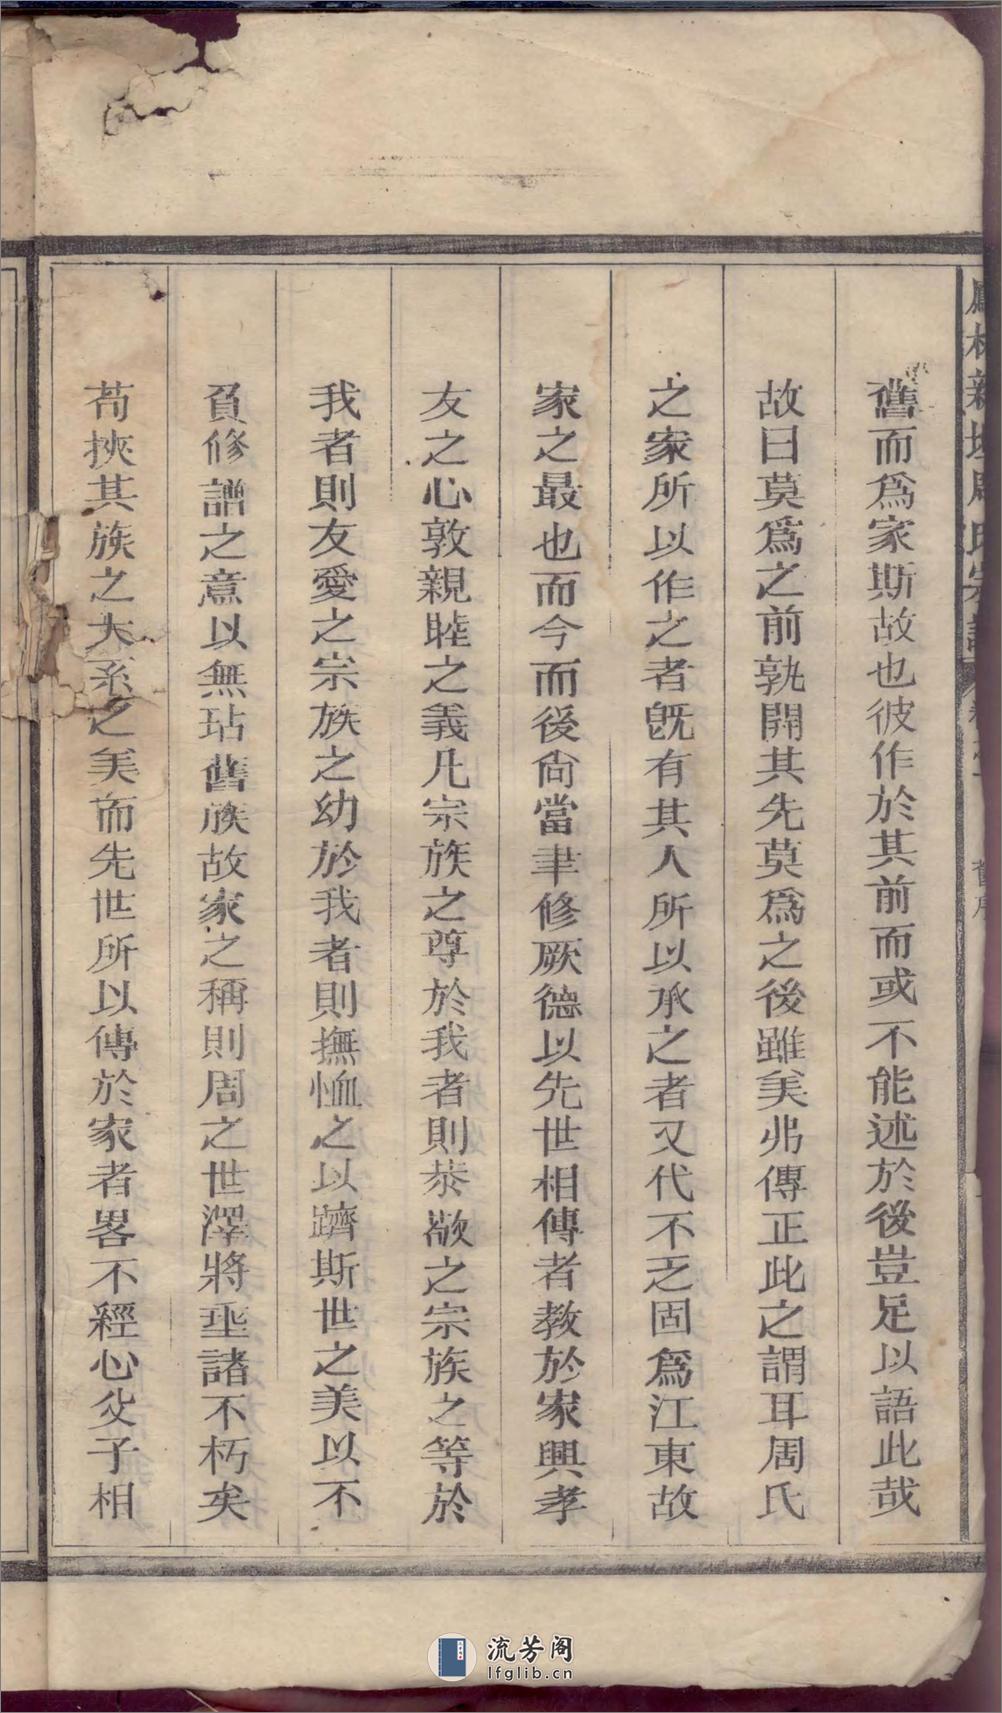 舊而爲家斯故也彼作於其前而或不能述於後豈足以語此哉
故曰莫爲之前孰開其先莫爲之後雖美弗傳正此之謂耳周氏
之家所以作之者旣有其人所以承之者又代不乏固爲江東故
家之最也而今而後尙當聿修厥德以先世相傳者教於家興孝
友之心敦親睦之義凡宗族之尊於我者則恭敬之宗族之等於
我者則友愛之宗族之幼於我者則撫恤之以躋斯世之美以不
負修譜之意以無玷舊族故家之稱則周之世澤將垂諸不朽矣
苟挾其族之大系之美而先世所以傳於家者畧不經心父子相
流芳阁
lfglib.cn